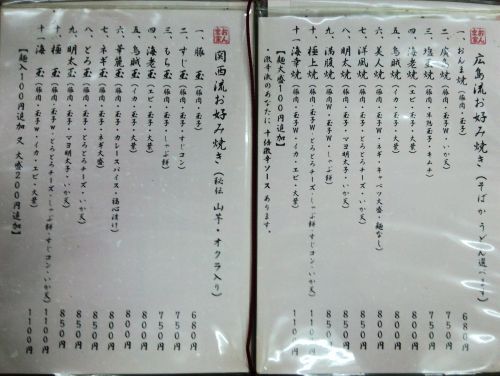 おん玉家
広島流お好み焼き(そばかうどん選べます)
一、おん玉焼(豚肉・玉子) 680円
二、広島焼 750円
三、塩玉焼(豚肉・半熟玉子・キムチ) 750円
四、海老焼(エビ・玉子・大葉) 800円
五、烏賊焼(イカ・玉子・大葉) 800円
六、美人焼(豚肉・玉子・ネギ・キャベツ大盛・麺なし) 800円
七、洋風焼(豚肉・玉子・とろとろチーズ・いか天) 850円
八、明太焼(豚肉・玉子・マヨ明太子・いか天) 850円
九、満腹焼(豚肉W・玉子W・しゃぶ餅) 850円
十、極上焼(豚肉W・玉子W・とろとろチーズ・しゃぶ餅・いか天) 1100円
十一、海幸焼(豚肉・玉子W・イカ・エビ・大葉) 1100円
【麺大盛100円追加】
激辛派のあなたに十倍激辛ソースあります。
おん玉家
関西流お好み焼き(秘伝 山芋・オクラ入り)
一、豚玉(豚肉・玉子) 680円
二、すじ玉(豚肉・玉子・すじコン) 750円
三、もち玉(豚肉・玉子・しゃぶ餅) 750円
四、海老玉(エビ・玉子・大葉) 800円
五、烏賊玉(イカ・玉子・大葉) 800円
六、華麗玉(豚肉・玉子・カレースパイス・福心漬け) 800円
七、ネギ玉(豚肉・玉子・ネギ大盛) 800円
八、とろ玉(豚肉・玉子・とろとろチーズ・いか天) 850円
九、明太玉(豚肉・玉子・マヨ明太子・いか天) 850円
十、極玉(豚肉・玉子W・とろとろチーズ・しゃぶ餅・すじコン・いか天) 1100円
十一、海玉(豚肉・玉子W・イカ・エビ・大葉) 1100円
【麺入100円追加 又 大盛200円追加】